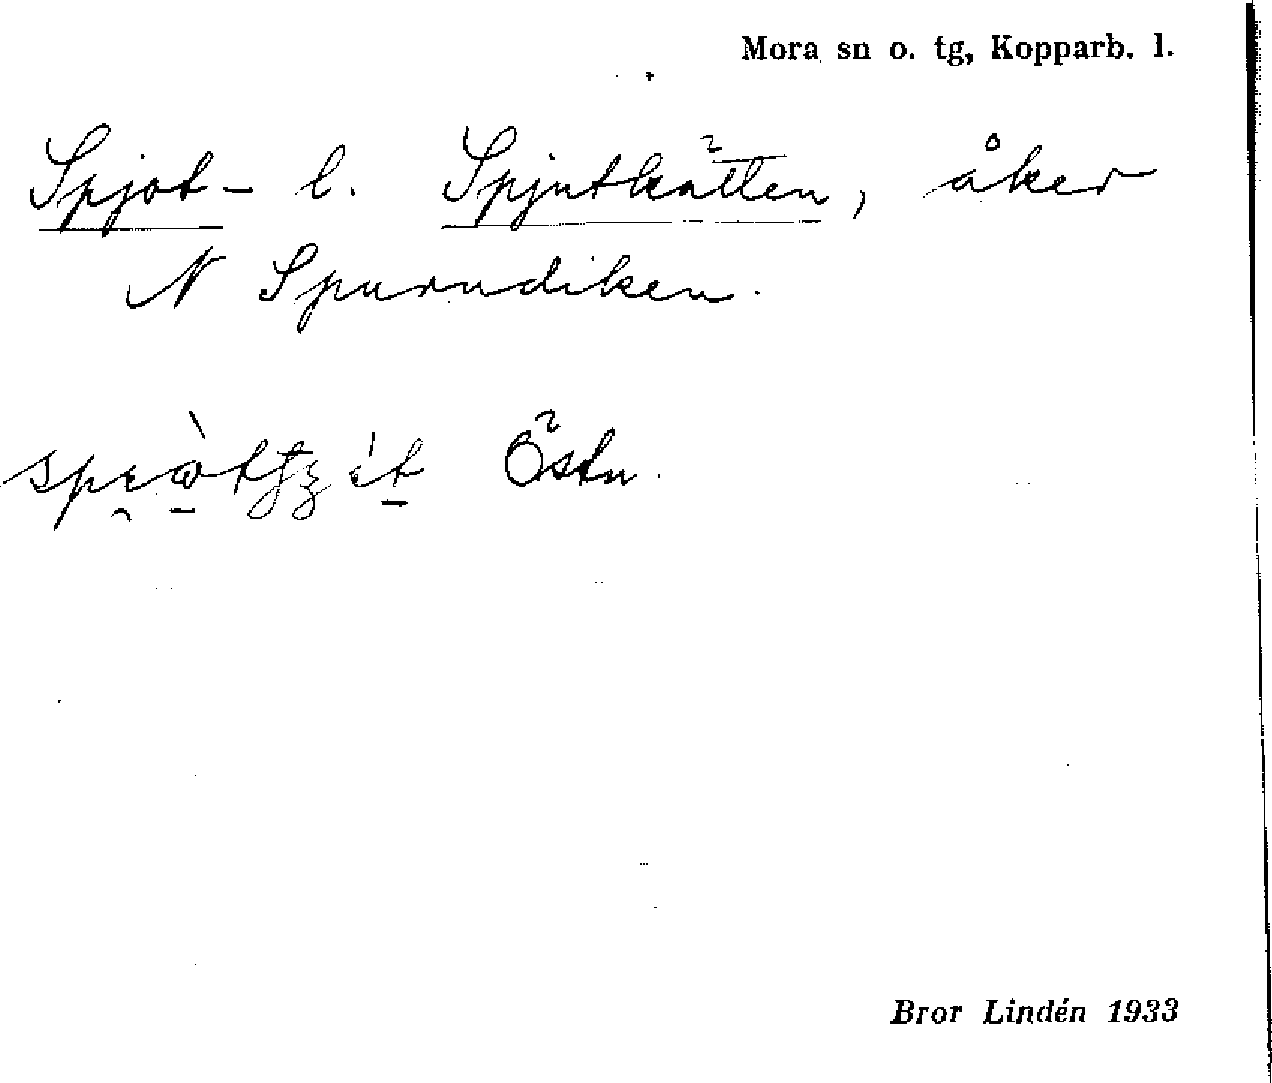 Mora sn o. tg, Kopparb. l.
Spjot- l. Spjutkätten, åker
N Spurudiken.
Östn.
Bror Lindén 1933